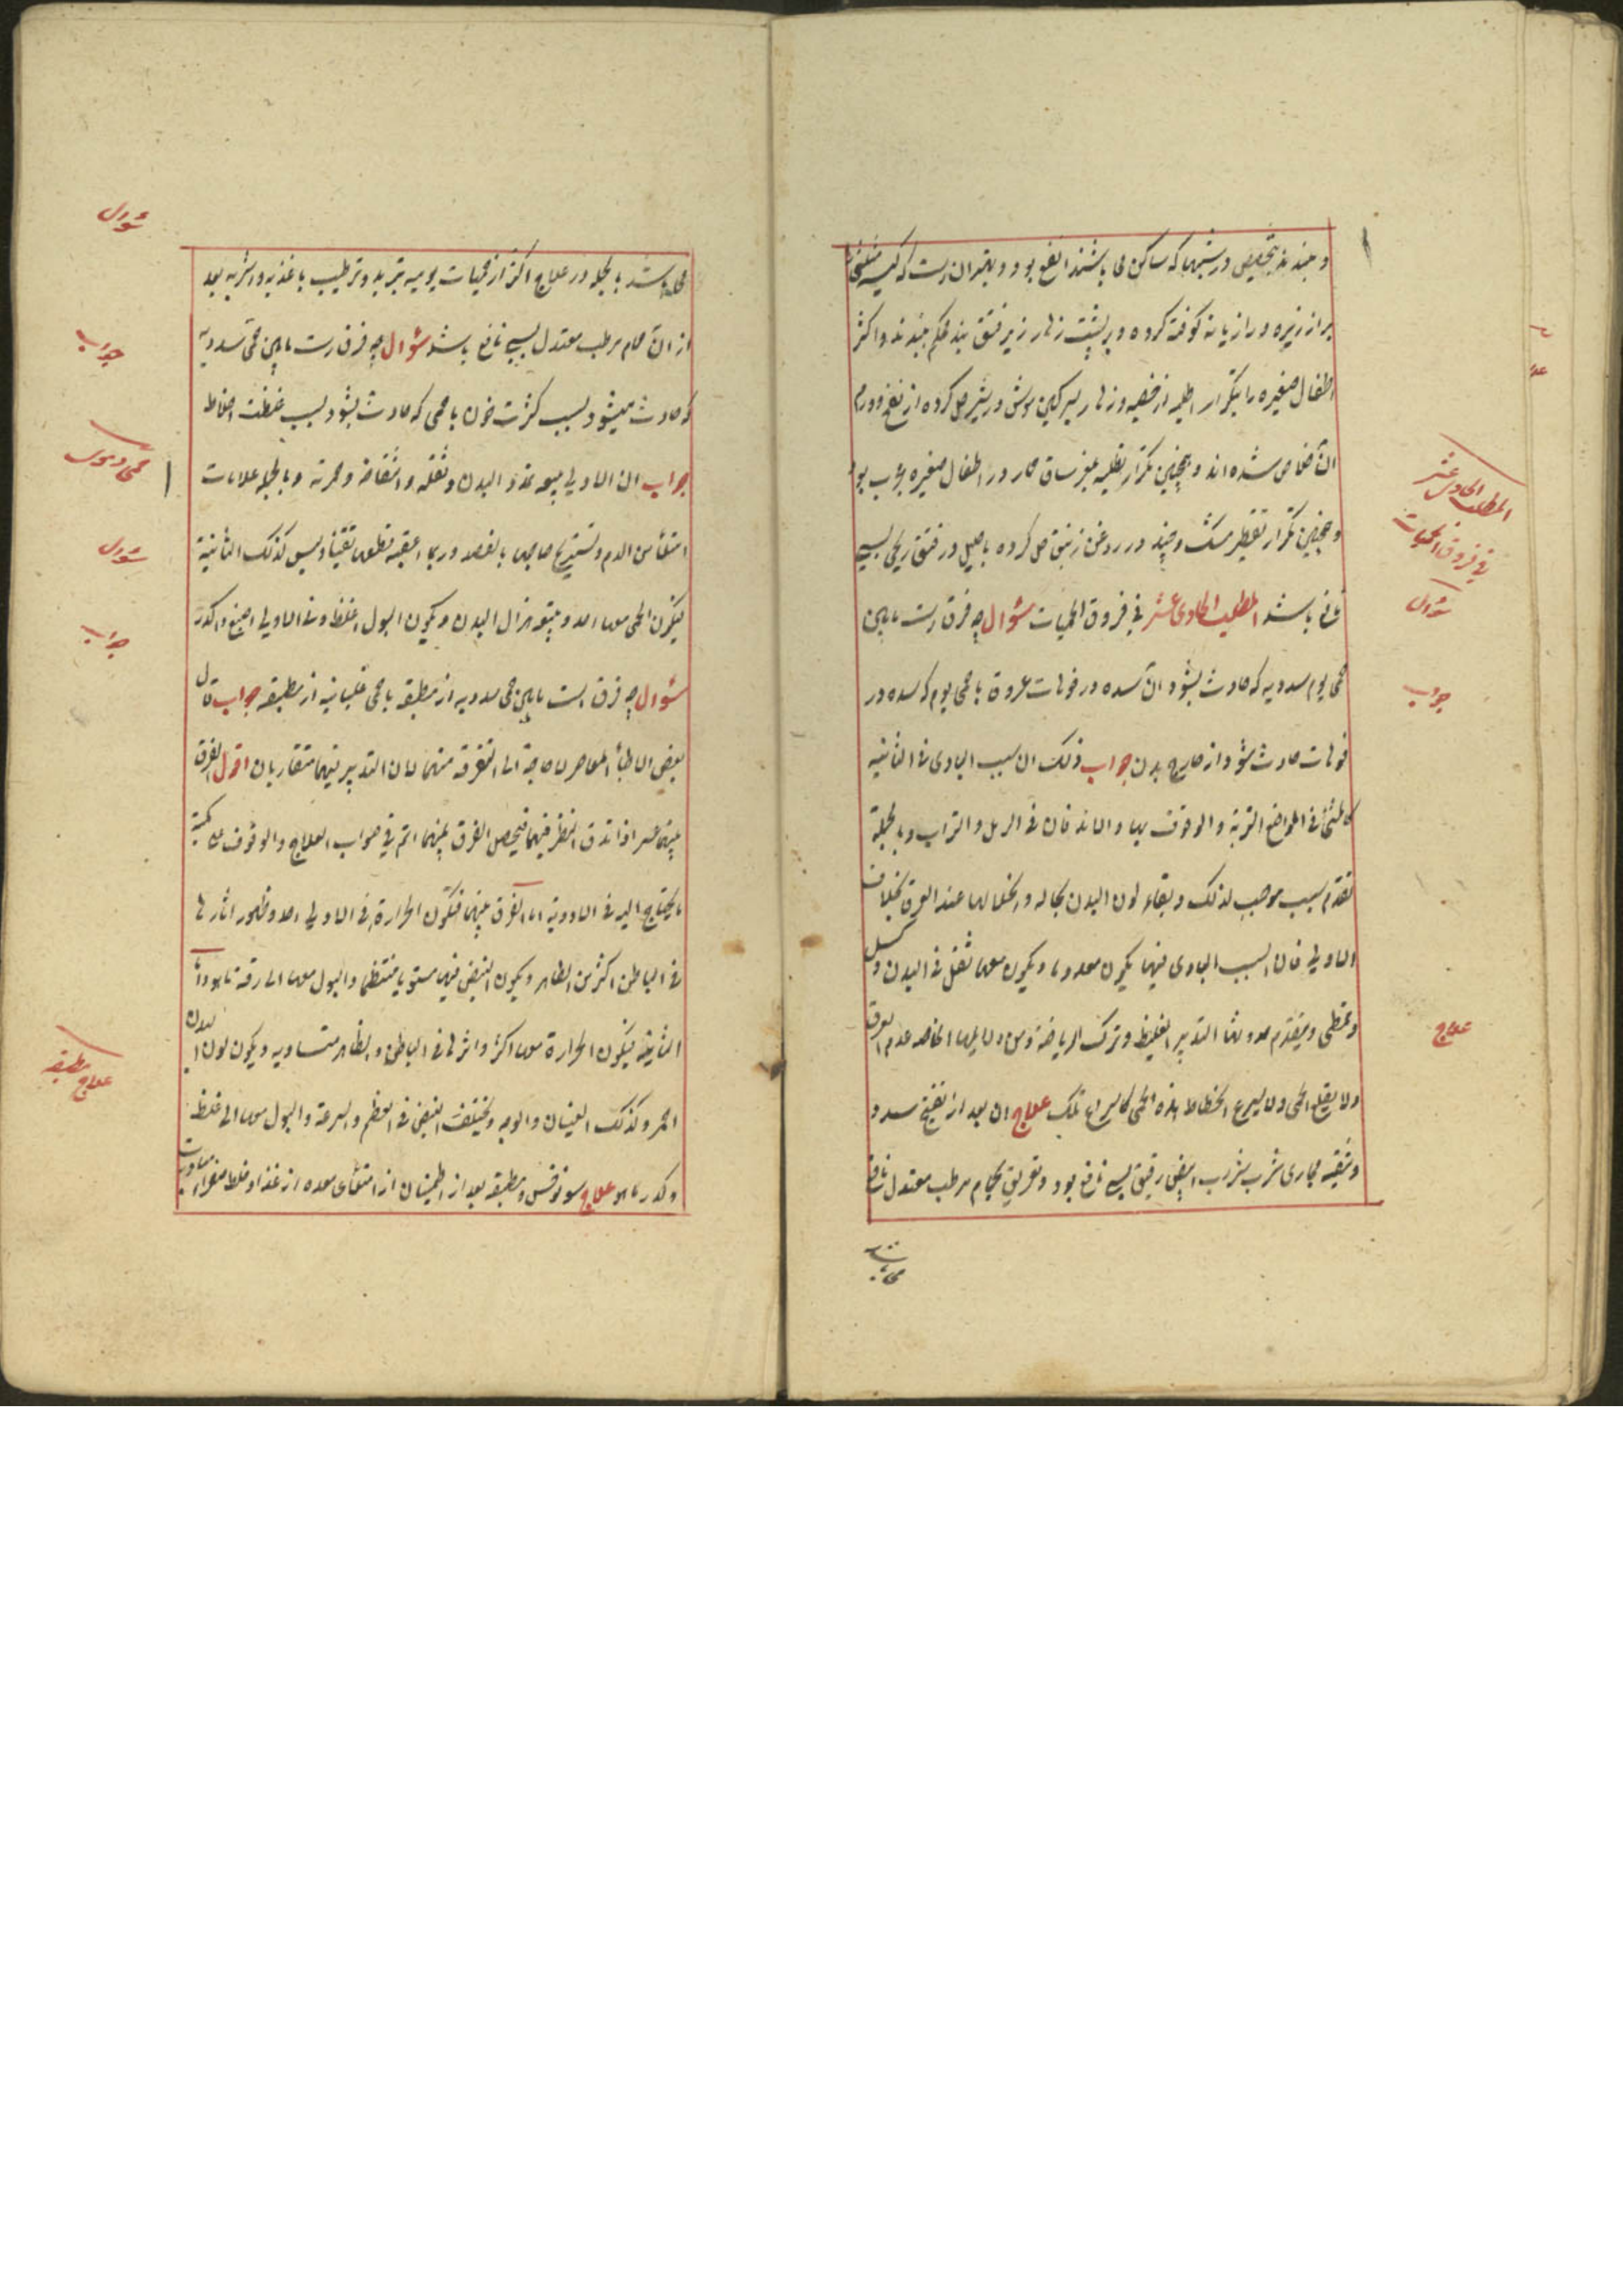 و ببندند بتخصیص در شبها که ساکن می باشند انفع بود و بهتر ان است که کیسه
پر از زیره و رازیانه کوفته کرده و بر پشت زهار زیر فتق بند محکم ببندند و اکثر
اطفال صغیره را بتکرار اطلیه از خصیه و زهار بسرکین موش در شیر حل کرده از نفخ و ورم
ان خلاص شده اند و همچنین تکرار بطلیه مغز ساق حمار در اطفال صغیره مجرب بود
و همچنین تکرار تقطیر مشک و جند در روغن زنبق حل کرده باحلیل در فتق ریحی بسیی
نافع باشد المطلب الحادی عشر فی فروق الحمیات سؤال چه فرق است مابین
حمی یوم سددیه که حادث بشود ان سده در فوهات عروق با حمی یوم که سده در
فوهات حادث شود از خارج بدن جواب ذلک ان سبب البادی فی الثانیه
کالمشی فی المواضع التربة والوقوف بها والاندفان فی الرمل والتراب وبالجملة
تقدم سبب موجب لذلک وبقاء لون البدن بحاله وانحلالها عند العرق بخلاف
الاولی فان السبب البادی فیها یکون معدوما ویکون معها ثقل فی البدن وکسل
وتمطی ویتقدم حدوثها التدبیر الغلیظ وترک الریاضة ومن دلایلها الخاصه عدم العرق
ولا یقلع الحمی ولا یسرع انحطاط هذه الحمی کاسراع تلک علاج ان بعد از تفتیح سدد
و تنقیه مجاری شرب شراب ابیض رقیق بسی نافع بود و تعریق بحمام مرطب معتدل نافع
محلل باشد بالجمله در علاج اکثر از حمیات یومیه تبرید و ترطیب باغذیه و اشربه بعد
از ان حمام مرطب معتدل بسی نافع باشد سؤال چه فرق است مابین حمی سددیه
که حادث میشود بسبب کثرت خون با حمی که حادث بشود بسبب غلظت اخلاط
جواب ان الاولی یتبعه تمدد البدن وثقله وانتفاخه وحمرته وبالجمله علامات
امتلأ من الدم وتستریح صاحبها بالفصد وربما اعقبه قطعها یقینا ولیس کذلک الثانیة
فیکون الحمی معها احد ویتبع هزال البدن ویکون البول اغلظ وفی الاولی اصبغ واکدر
سؤال چه فرق است مابین حمی سددیه از مطبقه با حمی غلیانیه از مطبقه جواب قال
بعض الاطبأ المعاصر لا حاجة الی التفرقه منهما لان التدبیر فیهما متقاربان اقول الفرق
بینهما عسر اذا تدق النظر فیهما فیحصل الفرق بینهما اتم فی صواب العلاج والوقوف علی کمیة
ما یحتاج الیه فی الادویة اما الفرق بینهما فتکون الحرارة فی الاولی احد وظهور اثارها
فی الباطن اکثر من الظاهر ویکون النبض فیها مستویا منتظما والبول معها الی رقة ما هو واما
الثانیة فیکون الحرارة معها اکثر واثرها فی الباطن والظاهر متساویه ویکون لون البدن
احمر وکذلک العینان والوجه ویختلف النبض فی العظم والسرعة والبول معها الی غلظ
وکدر ما هو علاج سونوخس و مطبقه بعد از اطمینان از امتلای معده از غذا و خلط صفرا
محلل باشد
المطلب الحادی عشر
فی فروق الحمیات
سؤال
جواب
علاج
سؤال
جواب
حمی دموی
سؤال
جواب
علاج مطبقه